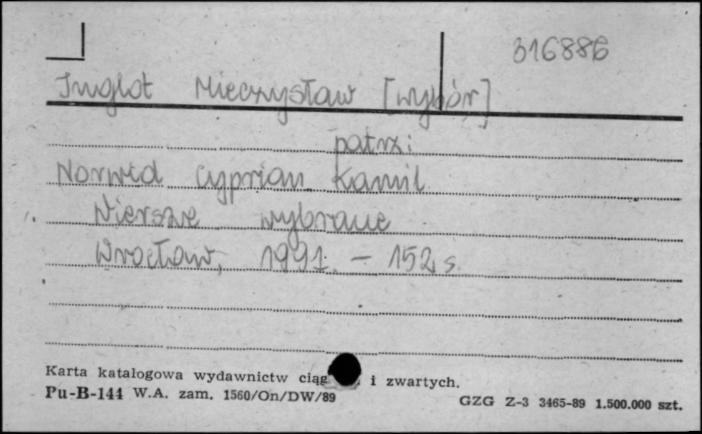 316886
Inglot Mieczysław [wybór]
patrz:
Norwid Cyprian Kamil
Wiersze wybrane
Wrocław, 1991. - 152 s.
Karta katalogowa wydawnictw ciąg i zwartych.
Pu-B-144 W.A. zam. 1560/On/DW/89 GZG Z-3 3465-89 1.500.000 szt.